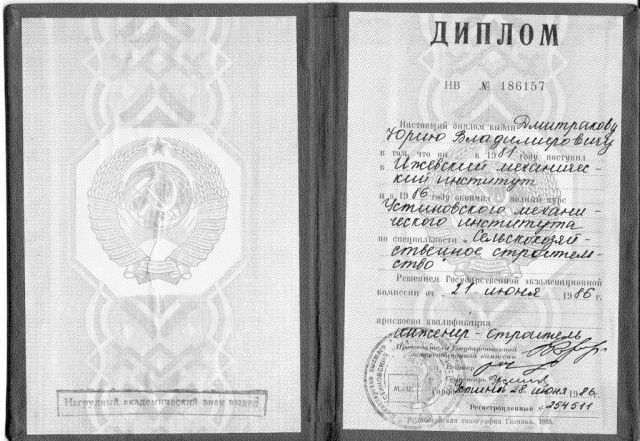 Нагрудный академический знак выдан
ДИПЛОМ
НВ № 186157
Настоящий диплом выдан Дмитракову
Юрию Владимировичу
в том, что он в 1981 году поступил
в Ижевский механичес-
кий институт
и в 1986 году окончил полный курс
Устиновского механи-
ческого института
по специальности „Сельскохозяй-
ственное строитель-
ство"
Решением Государственной экзаменационной
комиссии от 21 июня 1986 г.
присвоена квалификация
инженер-строитель
Председатель Государственной
экзаменационной комиссии
Ректор
Секретарь
М.П.
Город Устинов 28 июня 1986 г.
Регистрационный № 254511
Московская типография Гознака. 1985.